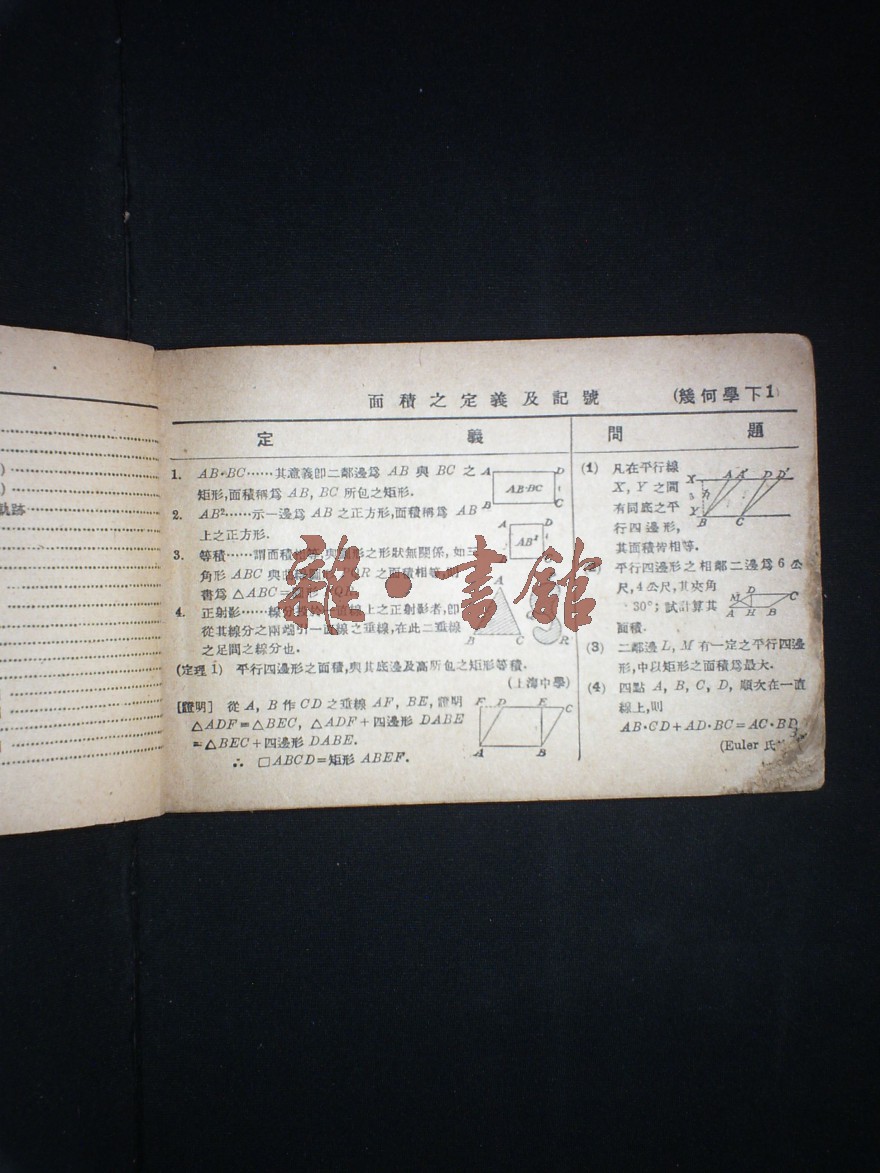 面積之定義及記號
(幾何學下1)
定義
1. AB·BC……其意義卽二鄰邊爲 AB 與 BC 之
矩形,面積稱爲 AB, BC 所包之矩形.
2. AB²……示一邊爲 AB 之正方形,面積稱爲 AB
上之正方形.
3. 等積……謂面積相等,與圖形之形狀無關係,如三
角形 ABC 與 PQR 之面積相等,則
書爲 △ABC=
4. 正射影……線分 線上之正射影者,卽
從其線分之兩端引一直線之垂線,在此二垂線
之足間之線分也.
(定理1) 平行四邊形之面積,與其底邊及高所包之矩形等積.
(上海中學)
[證明] 從 A, B 作 CD 之垂線 AF, BE, 證明
△ADF=△BEC, △ADF+四邊形 DABE
=△BEC+四邊形 DABE.
∴ □ABCD=矩形 ABEF.
A D
AB·BC
B C
A D
AB²
B
A
B C
R
F D E C
A B
問題
(1) 凡在平行線
X, Y 之間
有同底之平
行四邊形,
其面積皆相等.
X A A' D D'
Y
B C
平行四邊形之相鄰二邊爲6公
尺,4公尺,其夾角
30°;試計算其
面積.
D C
A H B
(3) 二鄰邊 L, M 有一定之平行四邊
形,中以矩形之面積爲最大.
(4) 四點 A, B, C, D, 順次在一直
線上,則
AB·CD+AD·BC=AC·BD
(Euler 氏
軌跡
雜·書館